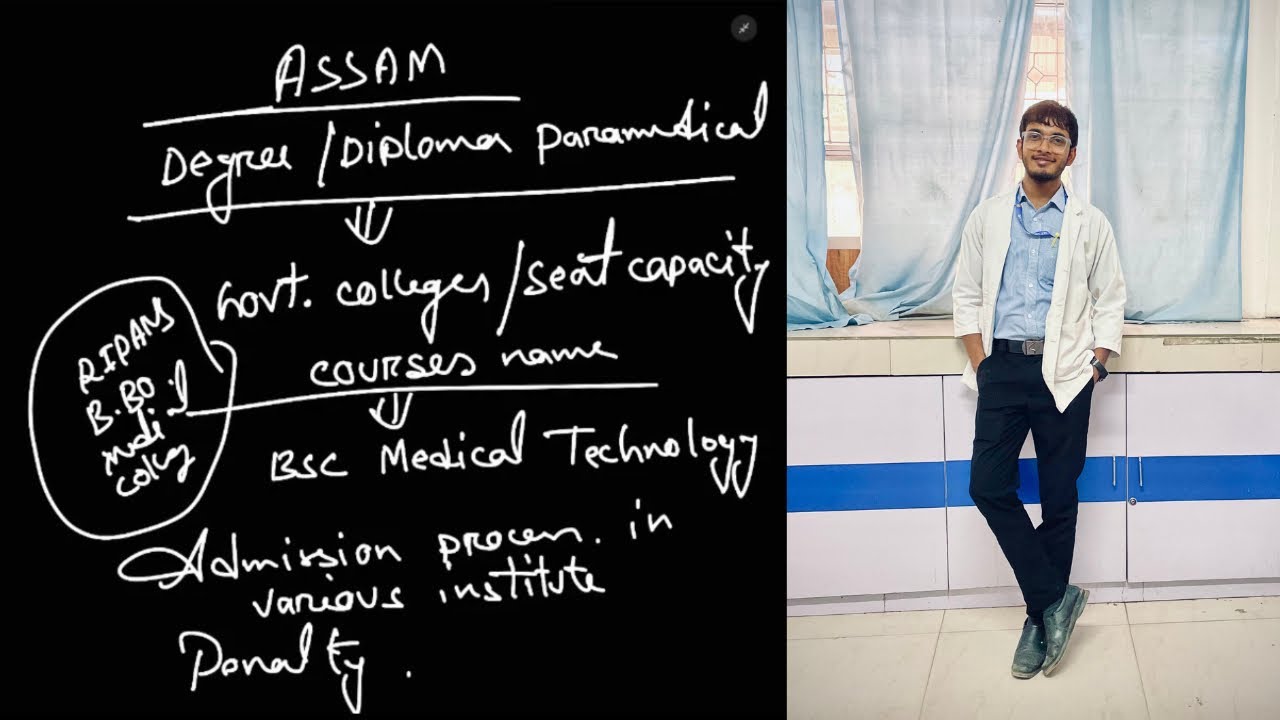 ASSAM
Degree / Diploma paramedical
Govt. colleges / seat capacity
courses name
RIPANS
B.BO
medi
colleg
BSC Medical Technology
Admission process. in
various institute
Penalty.